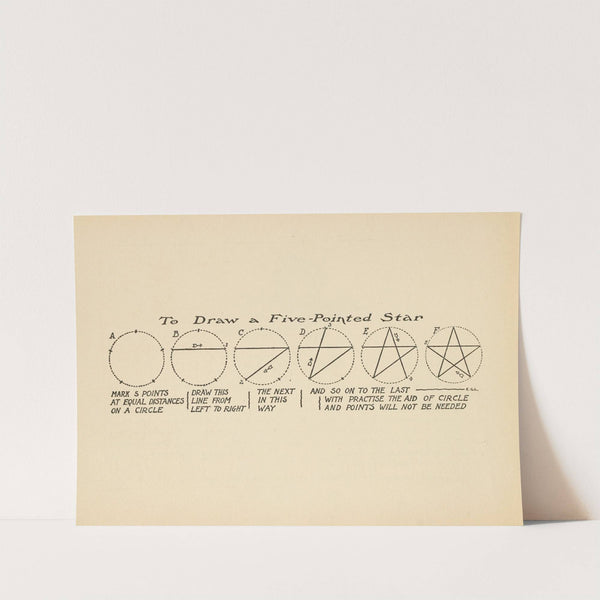 To Draw a Five-Pointed Star
A B C D E F
MARK 5 POINTS
AT EQUAL DISTANCES
ON A CIRCLE
DRAW THIS
LINE FROM
LEFT TO RIGHT
THE NEXT
IN THIS
WAY
AND SO ON TO THE LAST
WITH PRACTISE THE AID OF CIRCLE
AND POINTS WILL NOT BE NEEDED